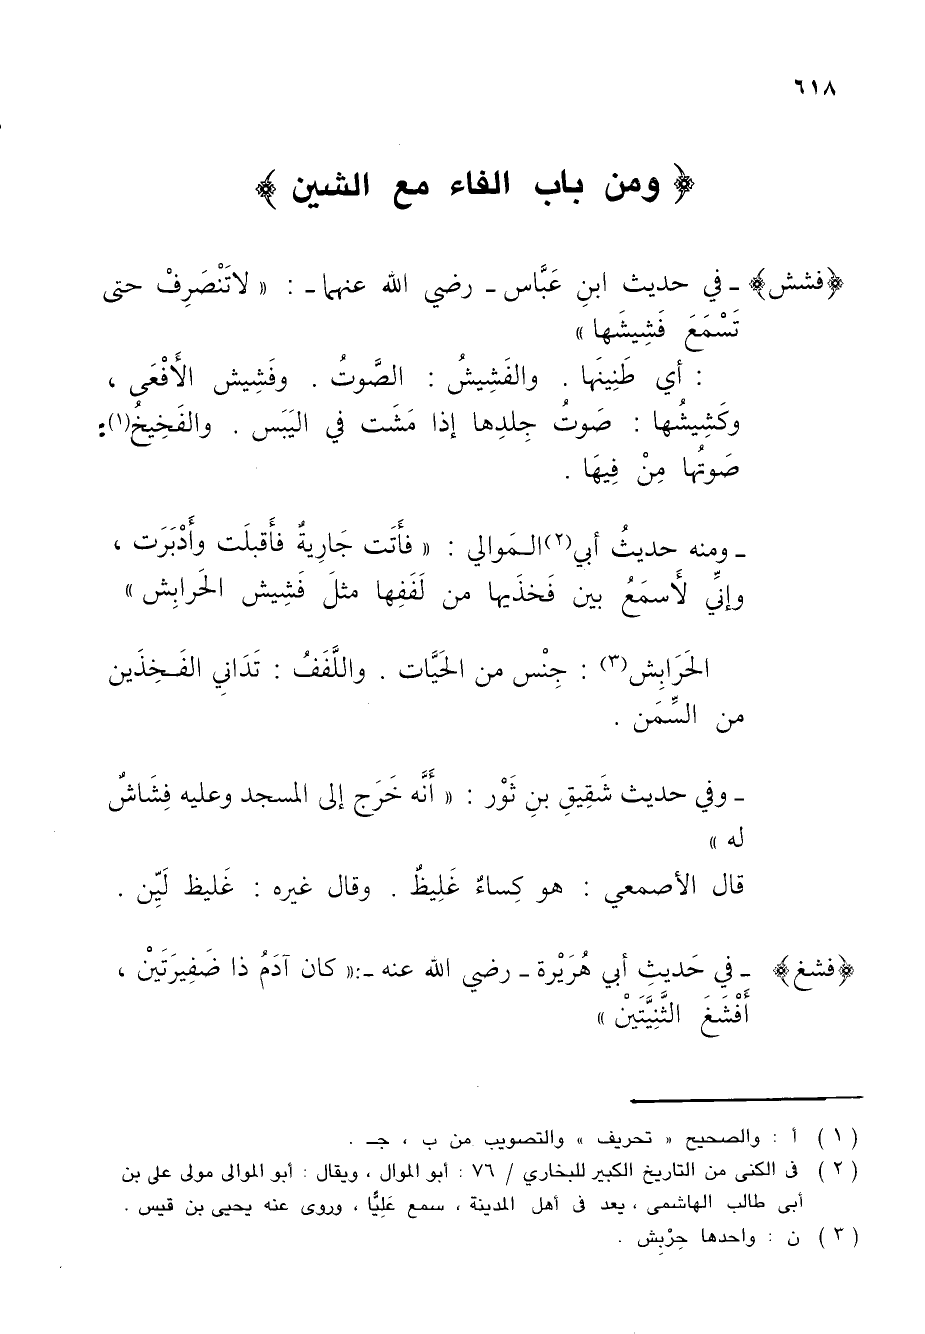 ٦١٨
﴿ ومن باب الفاء مع الشين ﴾
﴿فشش﴾ ـ في حديث ابنِ عَبَّاس ـ رضي الله عنهما ـ : « لاتَنْصَرِفْ حتى
تَسْمَعَ فَشِيشَها »
: أي طَنِينَها . والفَشِيشُ : الصَّوتُ . وفَشِيش الأَفْعَى ،
وكَشِيشُها : صَوتُ جِلدِها إذا مَشَت في اليَبَس . والفَخِيخُ(١):
صَوتُها مِنْ فِيهَا .
ـ ومنه حديثُ أبي(٢)المَوالي : « فأَتَت جَارِيةٌ فأَقبلَت وأَدْبَرَت ،
وإنِّي لأَسمَعُ بين فَخذَيها من لَفَفِها مثلَ فَشِيش الحَرابِش »
الحَرَابِش(٣) : جِنْس من الحَيَّات . واللَّفَفُ : تَدَاني الفَخِذَين
من السِّمَن .
ـ وفي حديث شَقِيقِ بنِ ثَوْر : « أَنَّه خَرَج إلى المسجد وعليه فِشَاشٌ
له »
قال الأصمعي : هو كِساءٌ غَلِيظٌ . وقال غيره : غَليظ لَيِّن .
﴿فشغ﴾ ـ في حَديثِ أبي هُرَيْرة ـ رضي الله عنه ـ:« كان آدَمُ ذا ضَفِيرَتَيْن ،
أَفْشَغَ الثَّنِيَّتَيْن »
( ١ ) أ : والصحيح « تحريف » والتصويب من ب ، جـ .
( ٢ ) في الكنى من التاريخ الكبير للبخاري / ٧٦ : أبو الموال ، ويقال : أبو الموالى مولى على بن
أبى طالب الهاشمى ، يعد فى أهل المدينة ، سمع عَلِيًّا ، وروى عنه يحيى بن قيس .
( ٣ ) ن : واحدها حِرْبِش .